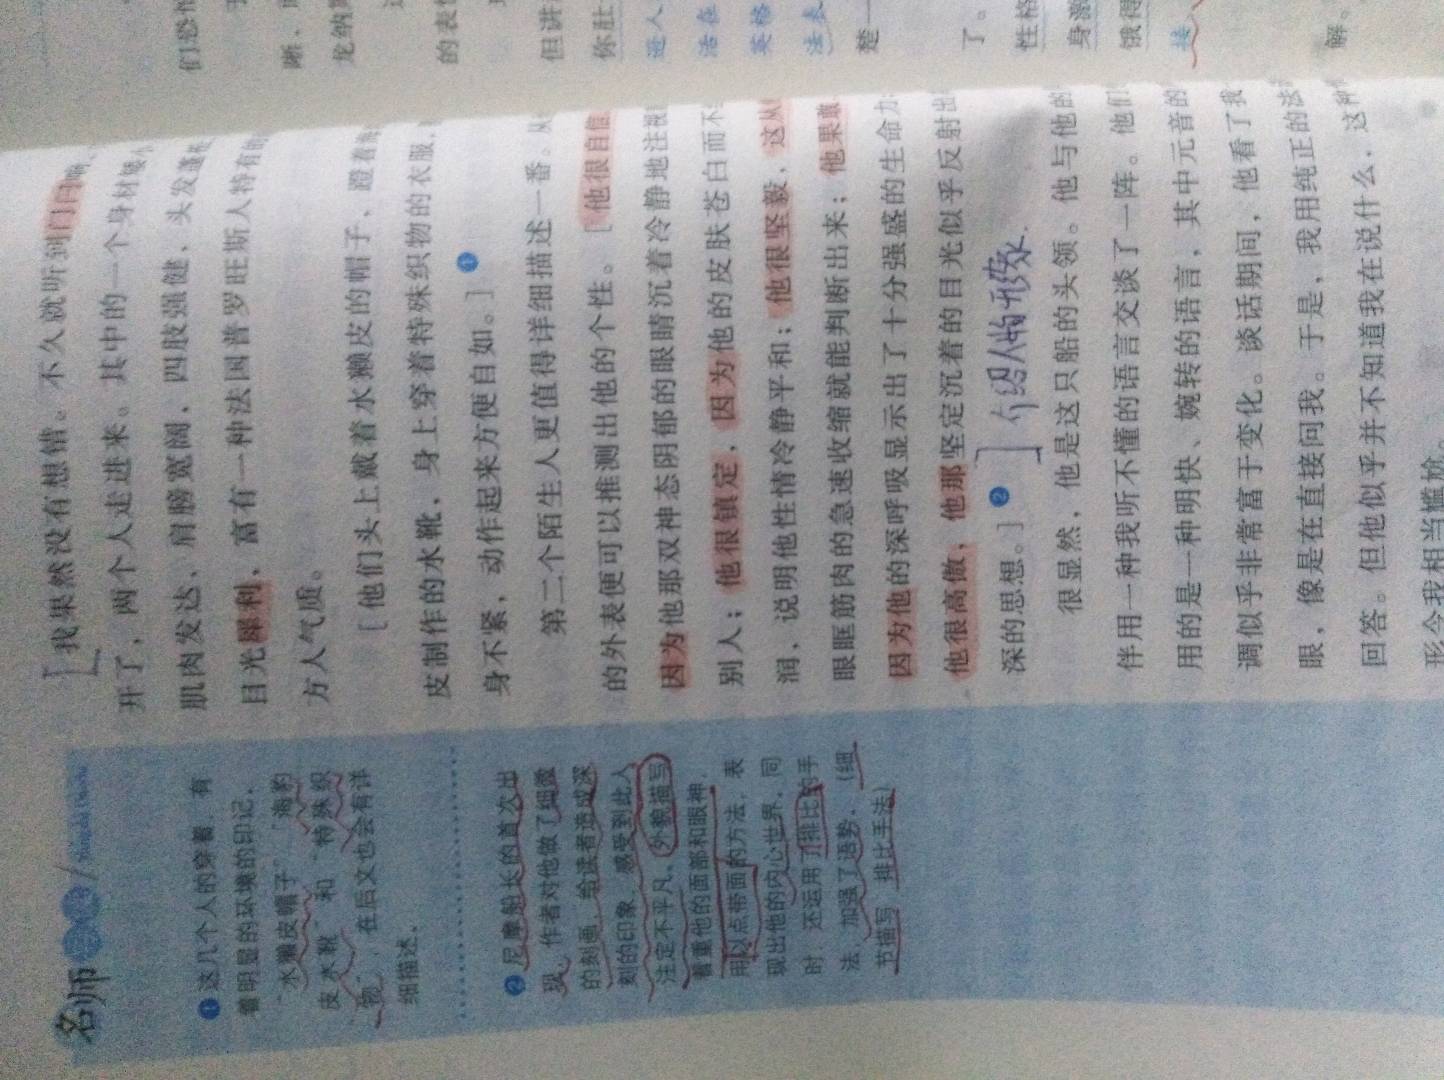 名师
❶ 这几个人的穿着，有
着明显的环境的印记，
“水獭皮帽子”“海豹
皮水靴”和“特殊织
物”，在后文也会有详
细描述。
❷ 尼摩船长的首次出
现，作者对他做了细微
的刻画，给读者造成深
刻的印象，感受到此人
注定不平凡。外貌描写
着重他的面部和眼神，
用以点带面的方法，表
现出他的内心世界，同
时，还运用了排比的手
法，加强了语势。（细
节描写 排比手法）
[我果然没有想错。不久就听到门闩响，
开了，两个人走进来。其中的一个身材矮小
肌肉发达、肩膀宽阔，四肢强健，头发蓬松
目光犀利，富有一种法国普罗旺斯人特有的
方人气质。
[他们头上戴着水獭皮的帽子，蹬着海
皮制作的水靴，身上穿着特殊织物的衣服，
身不紧，动作起来方便自如。] ❶
第二个陌生人更值得详细描述一番。从
的外表便可以推测出他的个性。[他很自信
因为他那双神态阴郁的眼睛沉着冷静地注视
别人；他很镇定，因为他的皮肤苍白而不
润，说明他性情冷静平和；他很坚毅，这从
眼眶筋肉的急速收缩就能判断出来；他果敢
因为他的深呼吸显示出了十分强盛的生命力
他很高傲，他那坚定沉着的目光似乎反射出
深的思想。] ❷ ] 介绍人物形象.
很显然，他是这只船的头领。他与他的
伴用一种我听不懂的语言交谈了一阵。他们
用的是一种明快、婉转的语言，其中元音的
调似乎非常富于变化。谈话期间，他看了我
眼，像是在直接问我。于是，我用纯正的法
回答。但他似乎并不知道我在说什么，这种
形令我相当尴尬。
们恐怕
晰，
龙纳
的表
但讲
你肚
进人
活在
英格
法表
楚一
了。
性格
身激
饿得
接
解。